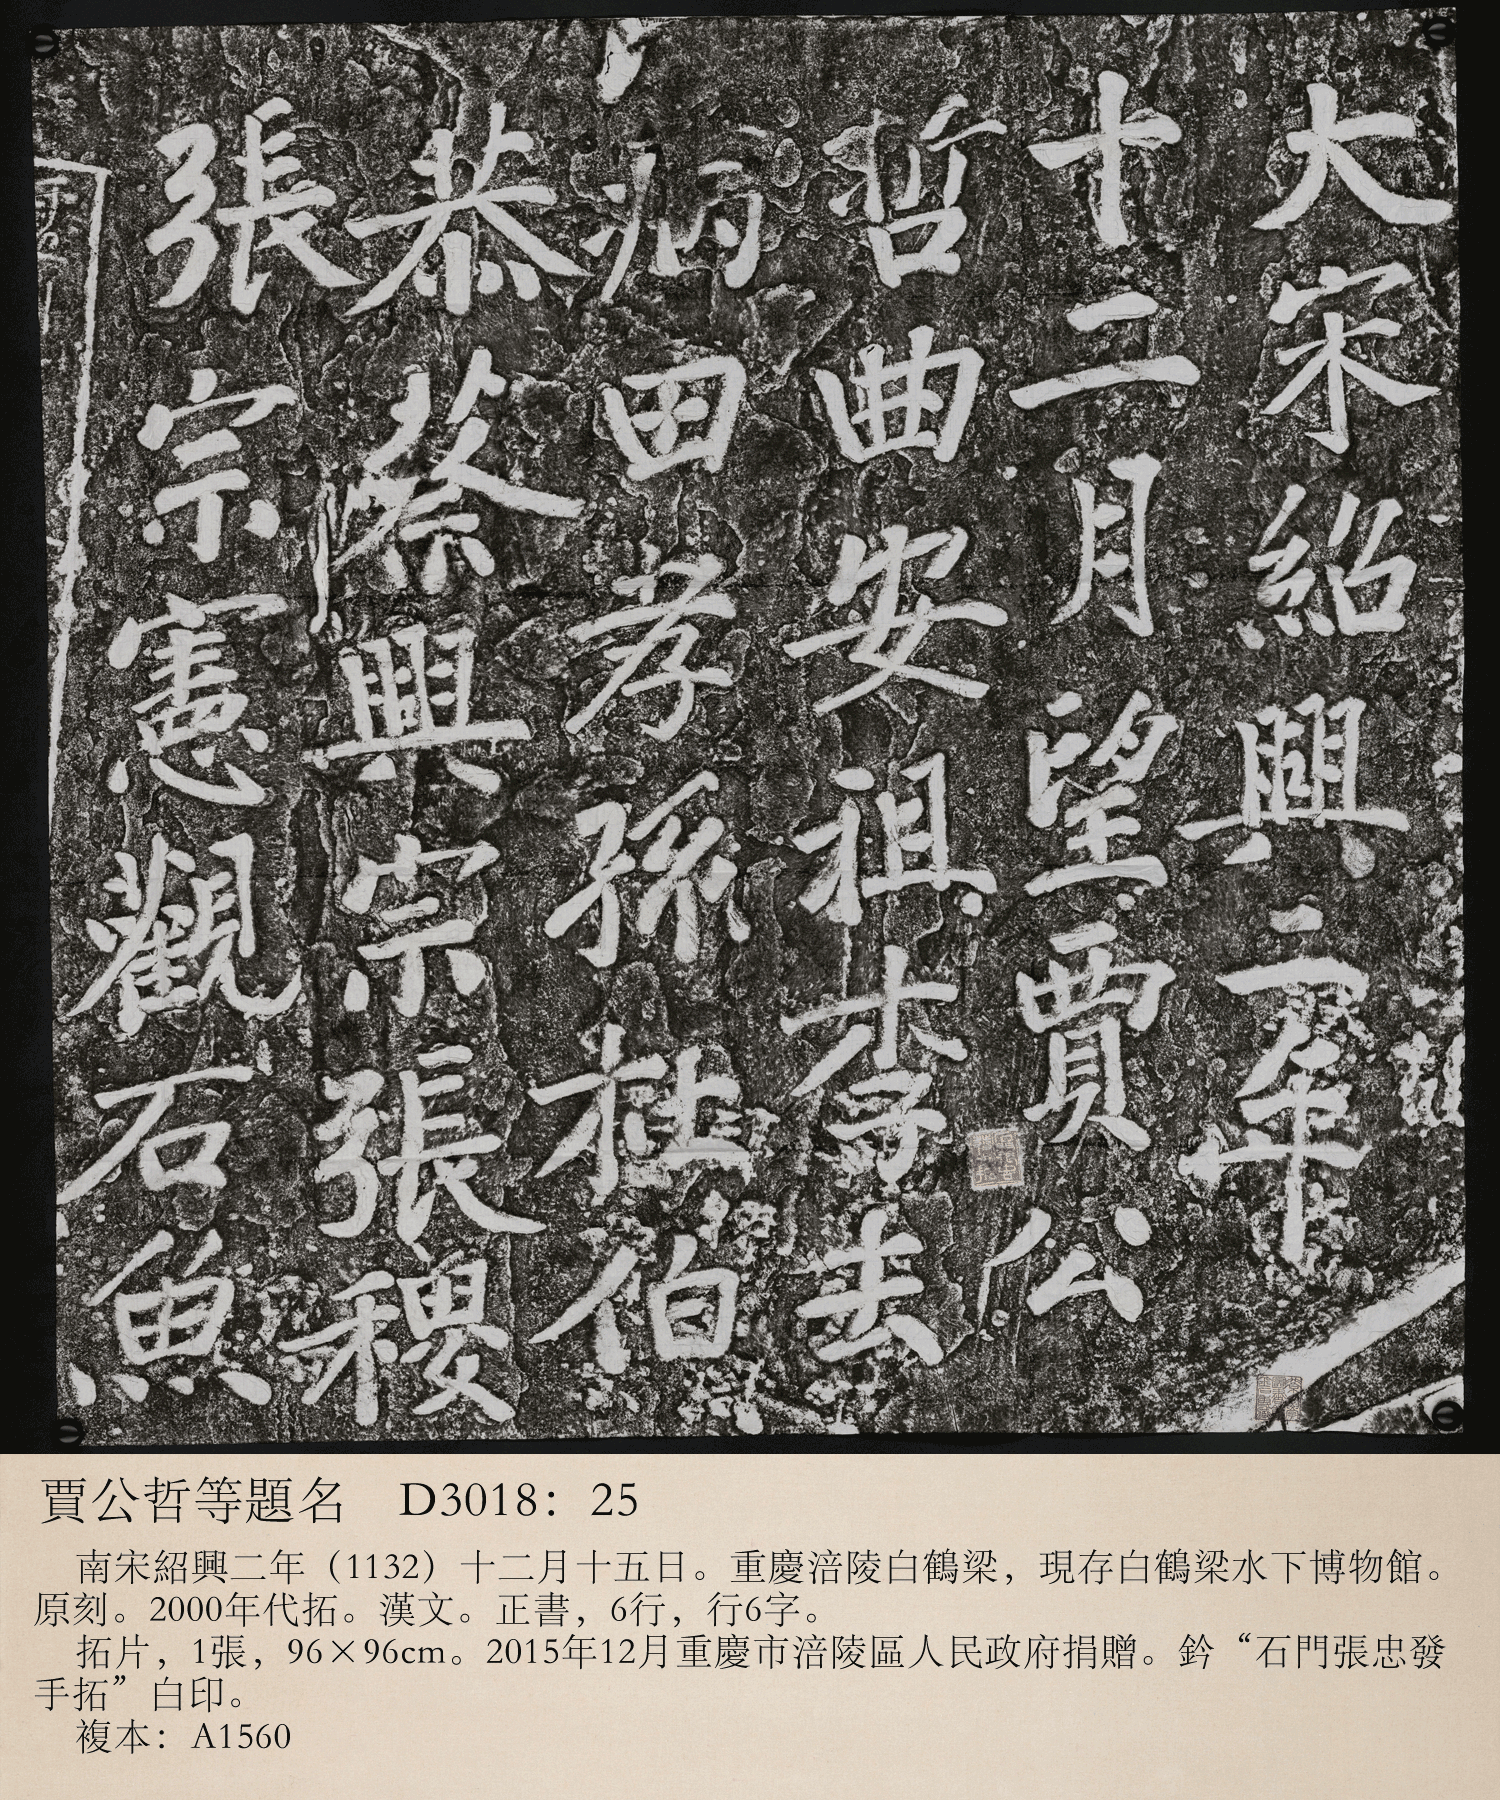 大宋紹興二年
十二月望賈公
哲曲安祖李去
病田孝孫杜伯
恭蔡興宗張稷
張宗憲觀石魚
賈公哲等題名 D3018：25
南宋紹興二年（1132）十二月十五日。重慶涪陵白鶴梁，現存白鶴梁水下博物館。
原刻。2000年代拓。漢文。正書，6行，行6字。
拓片，1張，96×96cm。2015年12月重慶市涪陵區人民政府捐贈。鈐“石門張忠發
手拓”白印。
複本：A1560